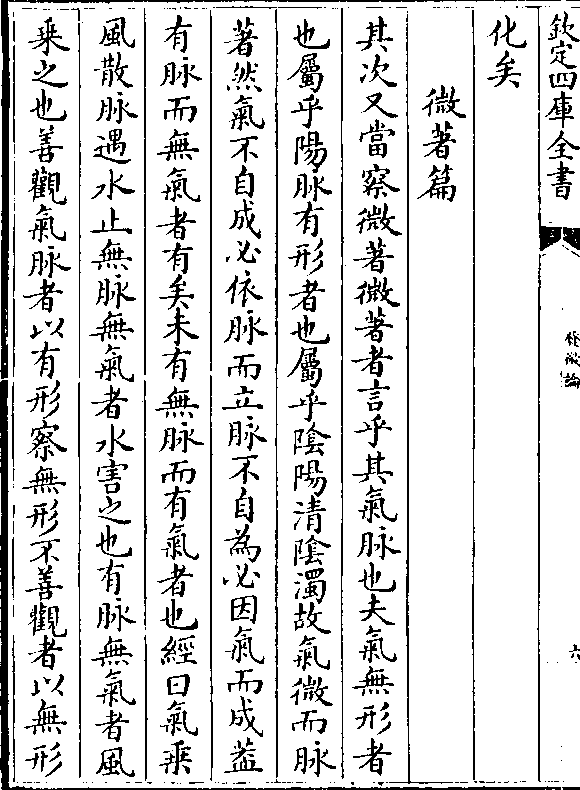 欽定四庫全書
發微論
六
化矣
微著篇
其次又當察微著微著者言乎其氣脉也夫氣無形者
也屬乎陽脉有形者也屬乎陰陽清陰濁故氣微而脉
著然氣不自成必依脉而立脉不自為必因氣而成蓋
有脉而無氣者有矣未有無脉而有氣者也經曰氣乗
風散脉遇水止無脉無氣者水害之也有脉無氣者風
乗之也善觀氣脉者以有形察無形不善觀者以無形